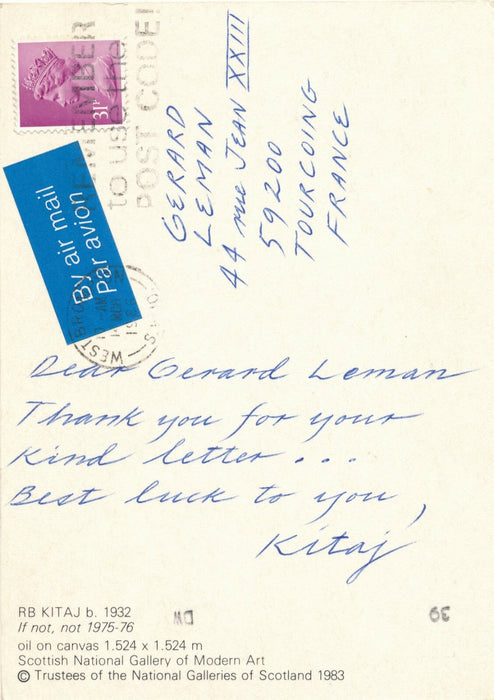 31P
REMEMBER
to use the
POST CODE!
By air mail
Par avion
GERARD
LEMAN
44 rue JEAN XXIII
59200
TOURCOING
FRANCE
Dear Gerard Leman
Thank you for your
kind letter . . .
Best luck to you,
Kitaj
RB KITAJ b. 1932
If not, not 1975-76
oil on canvas 1.524 x 1.524 m
Scottish National Gallery of Modern Art
© Trustees of the National Galleries of Scotland 1983